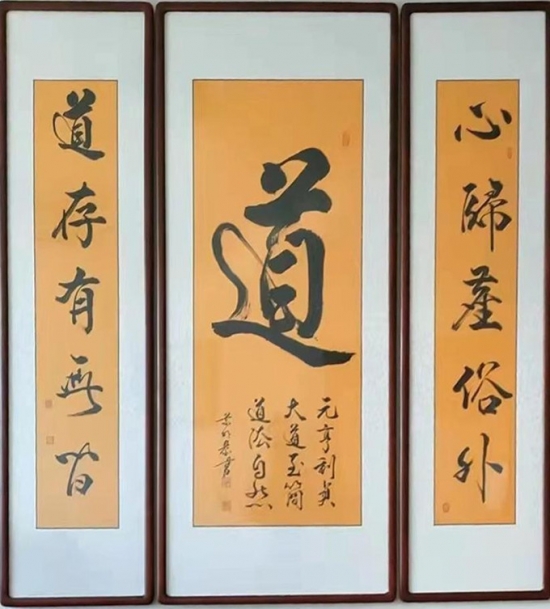 心歸塵俗外
道
元亨利貞
大道至簡
道法自然
道存有無間